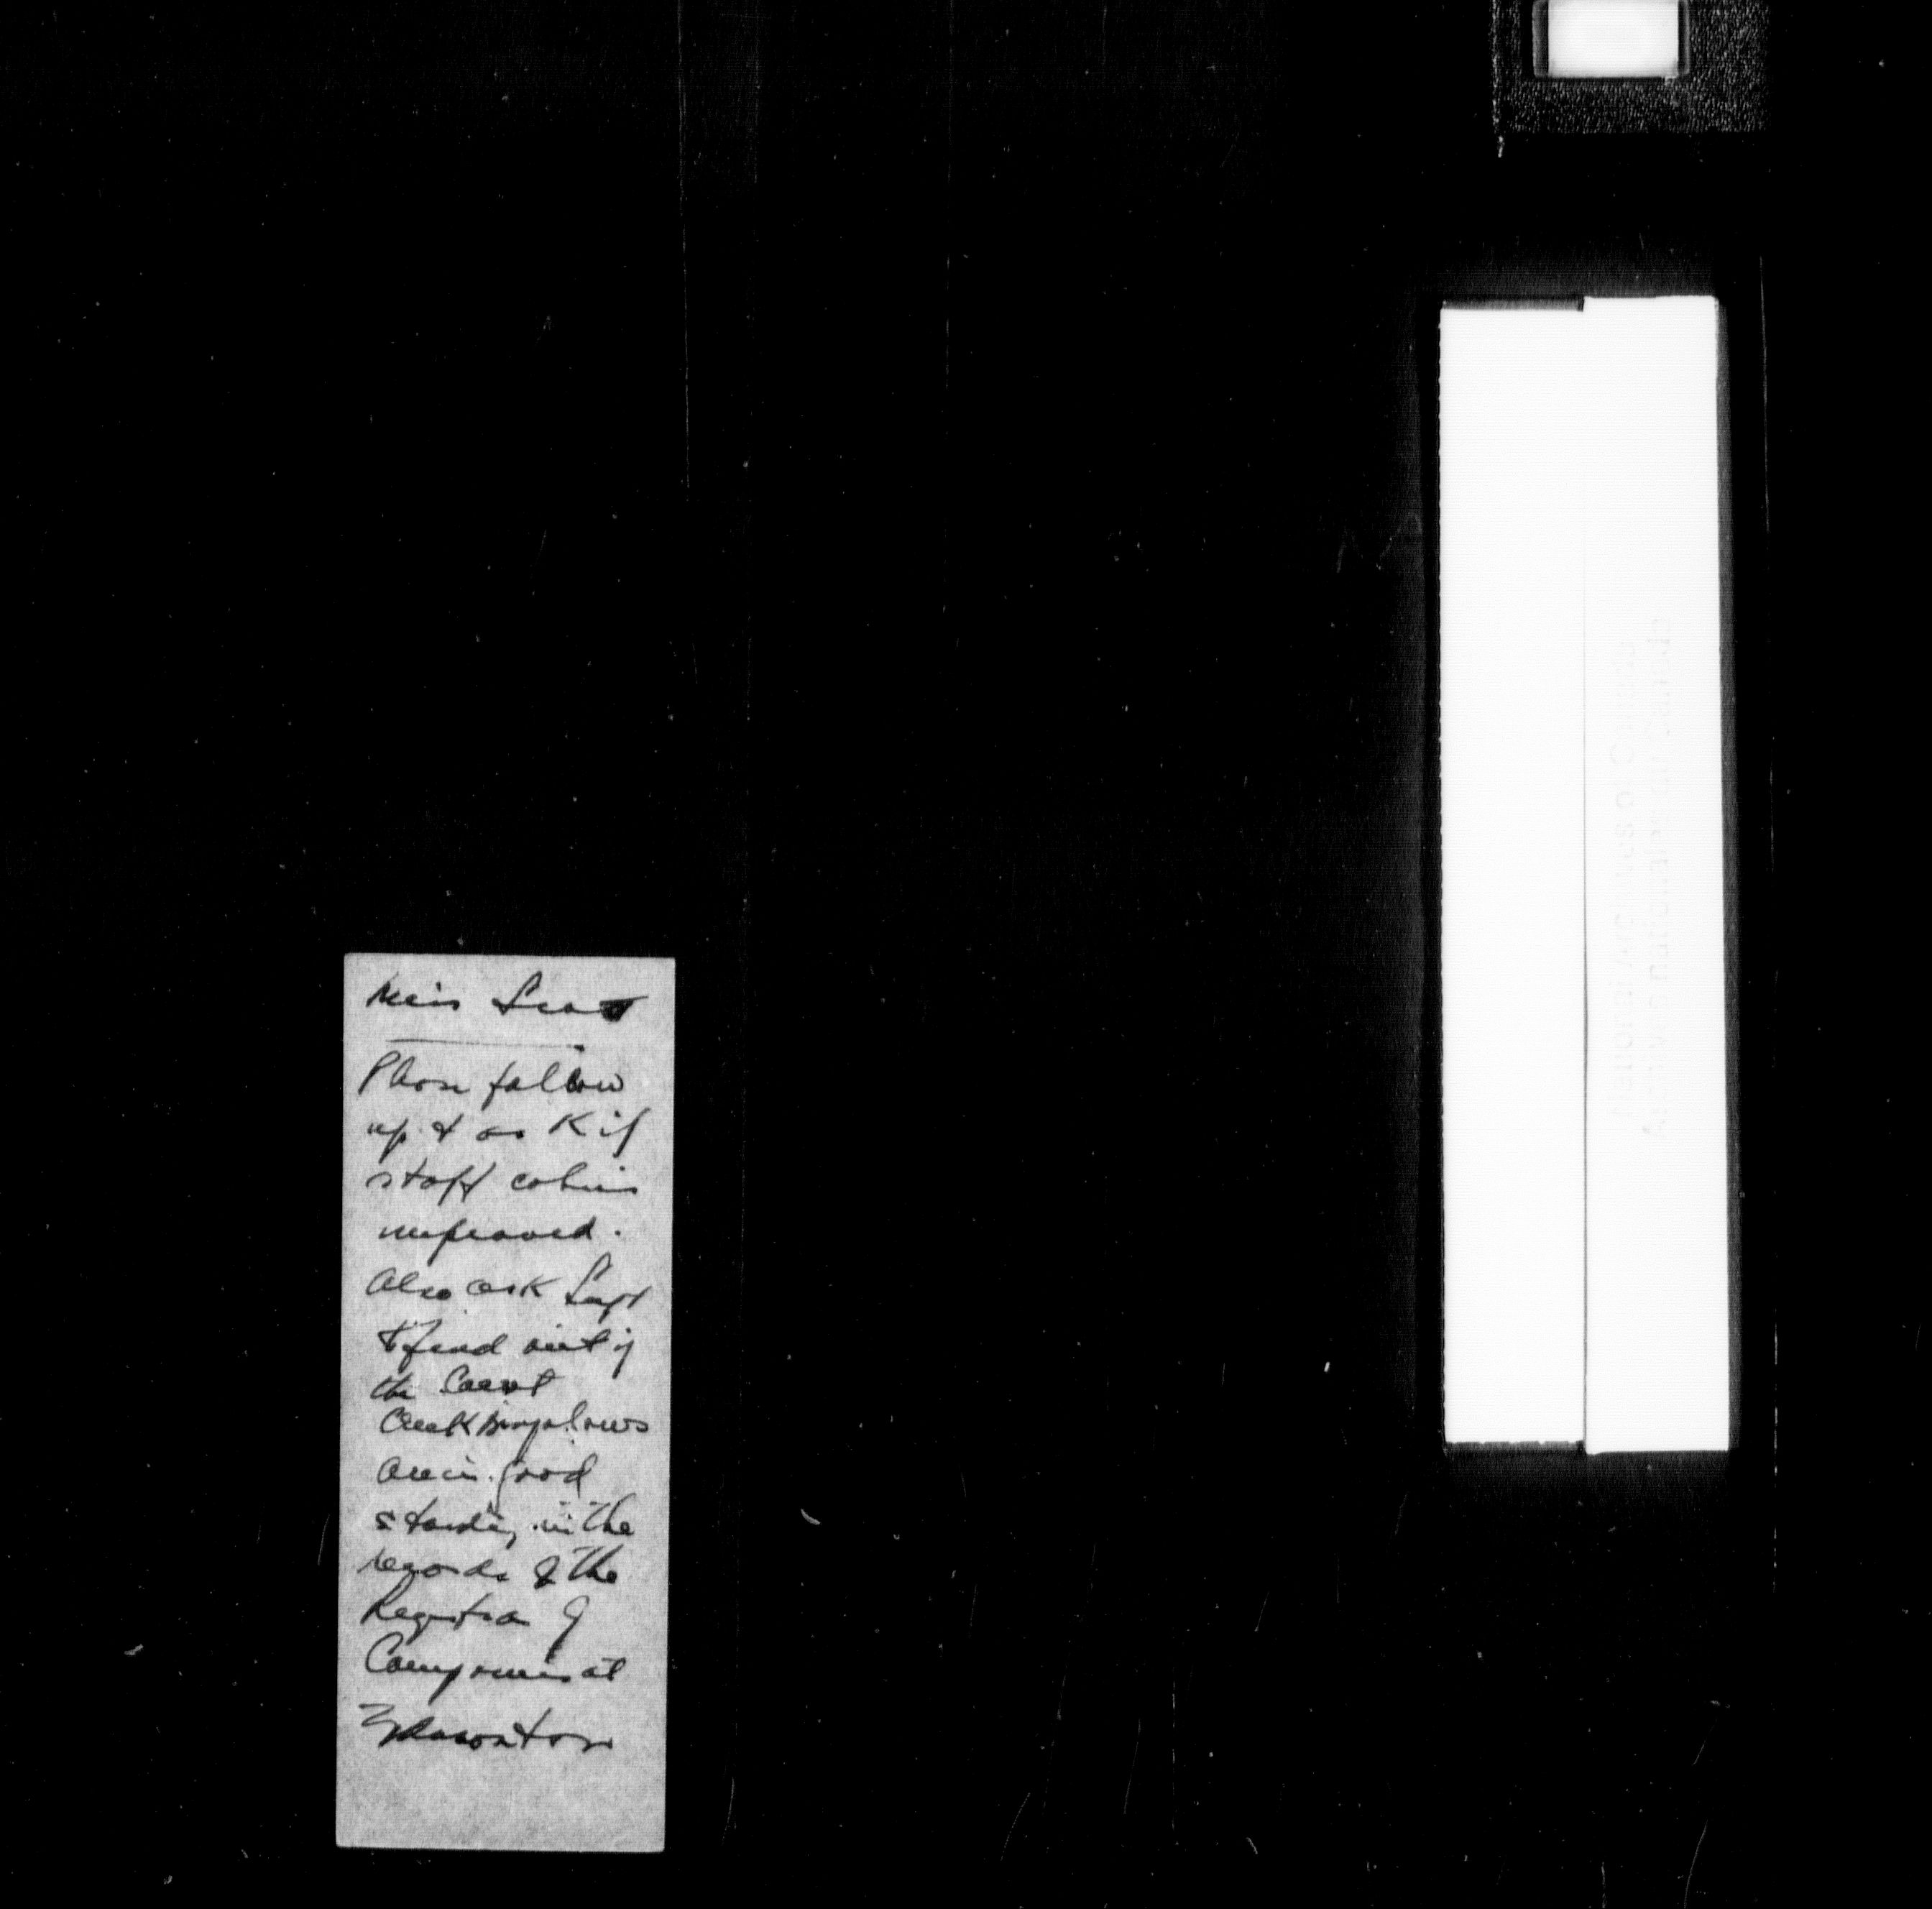 Miss Scott
Please follow
up & ask if
staff cabins
improved.
Also ask Supt
to find out if
the
Creek Bungalows
are in good
standing in the
records of the
Registrar of
Companies at
Edmonton